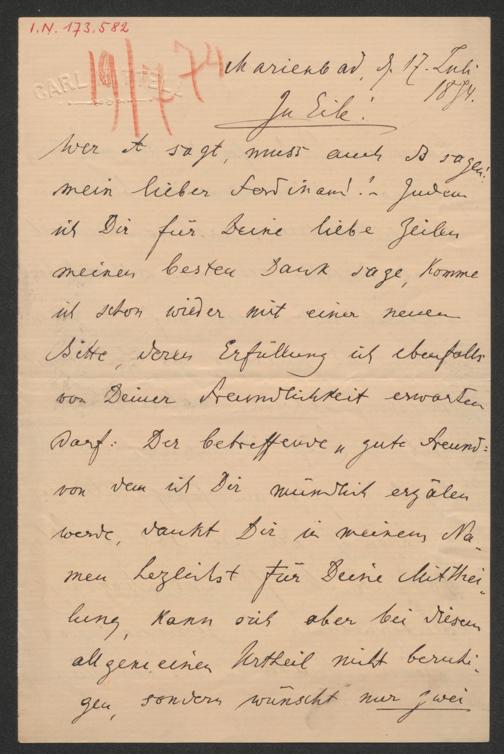 I.N. 173.582
19/7 74
CARL
Marienbad, d. 17. Juli
1874.
In Eile!
Wer A sagt, muss auch B sagen:
mein lieber Ferdinand! – Indem
ich Dir für Deine liebe Zeilen
meinen besten Dank sage, komme
ich schon wieder mit einer neuen
Bitte, deren Erfüllung ich ebenfalls
von Deiner Freundlichkeit erwarten
darf: Der betreffende „gute Freund:
von dem ich Dir mündlich erzälen
werde, dankt Dir in meinem Na-
men herzlichst für Deine Mitthei-
lung, kann sich aber bei diesem
allgemeinen Urtheil nicht beruhi-
gen, sondern wünscht nur zwei